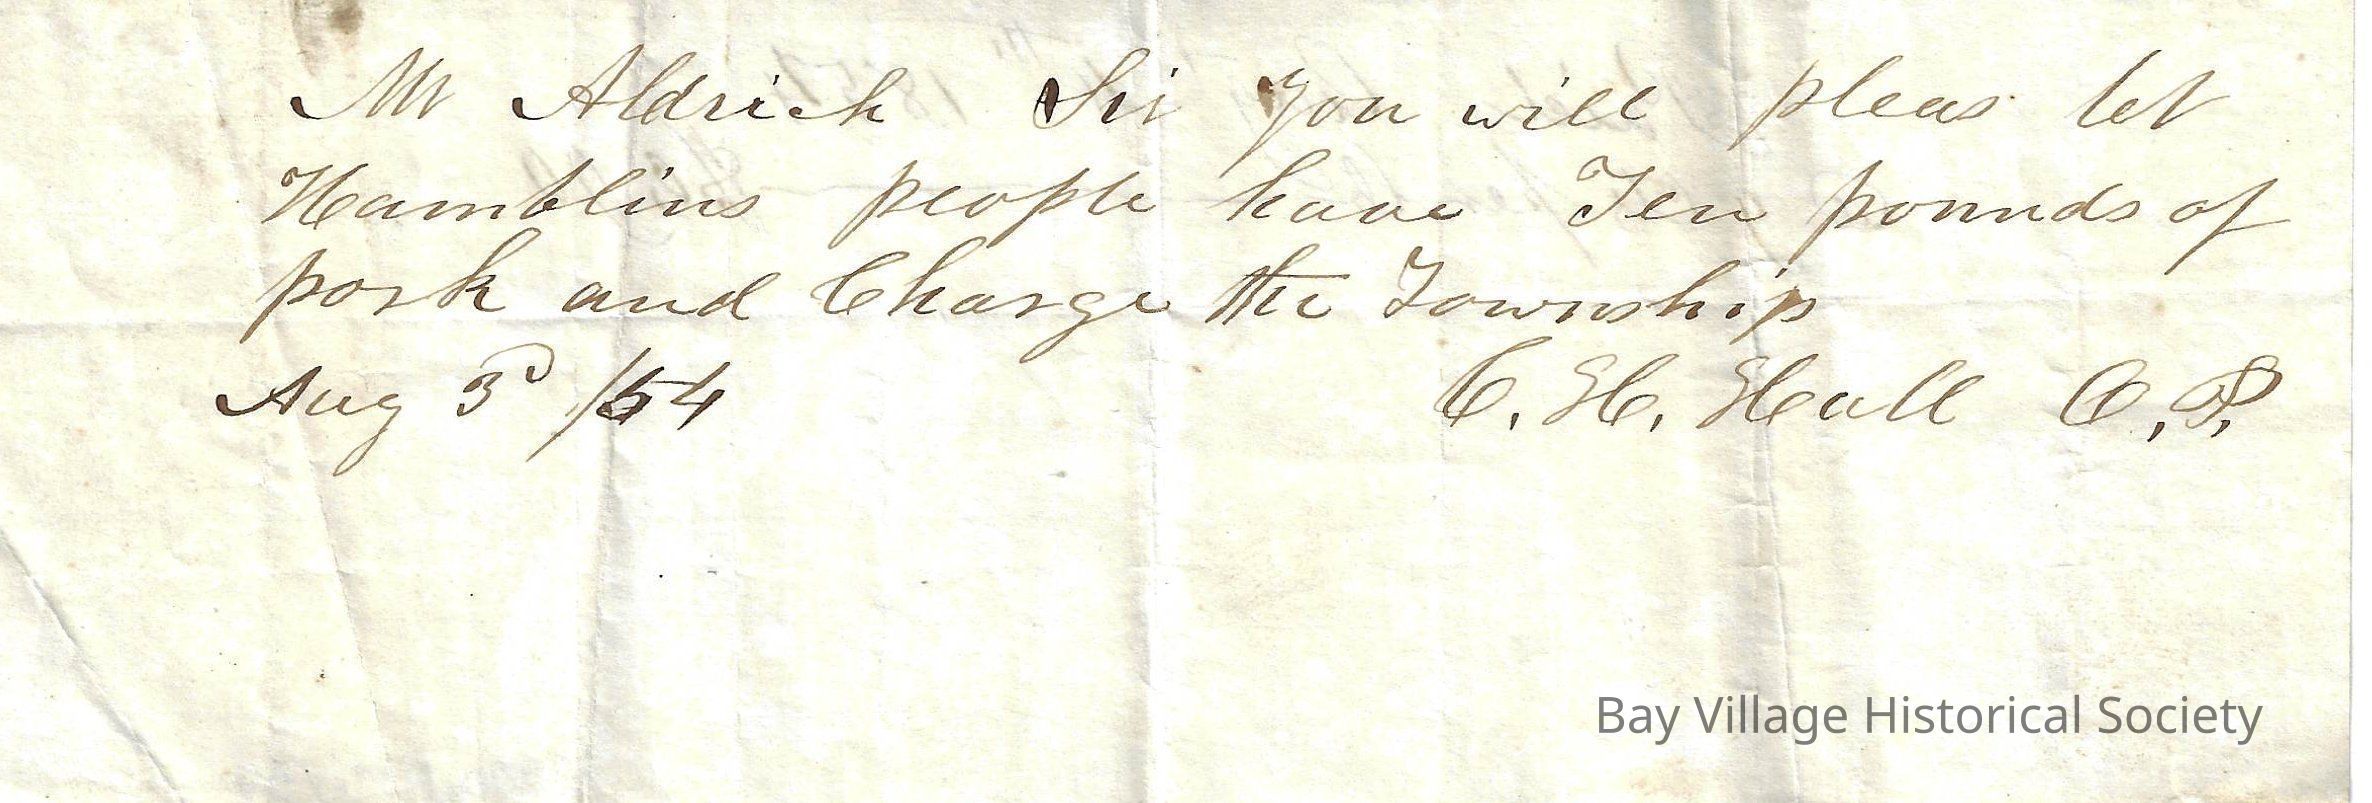 Mr Aldrich Sir You will pleas let
Hamblins people have Ten pounds of
pork and Charge the Township
Aug 3d /54 C. H. Hall O, P,
Bay Village Historical Society